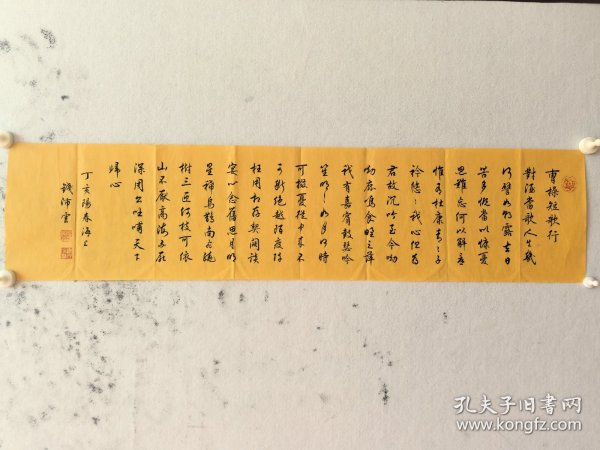 曹操短歌行
對酒當歌人生幾
何譬如朝露去日
苦多慨當以慷憂
思難忘何以解憂
惟有杜康青々子
衿悠々我心但為
君故沉吟至今呦
呦鹿鳴食野之蘋
我有嘉賓鼓瑟吹
笙明明如月何時
可掇憂從中來不
可斷絕越陌度阡
枉用相存契闊談
宴心念舊恩月明
星稀烏鵲南飛繞
樹三匝何枝可依
山不厭高海不厭
深周公吐哺天下
歸心
丁亥陽春海上
錢沛雲
孔夫子旧书网
www.kongfz.com